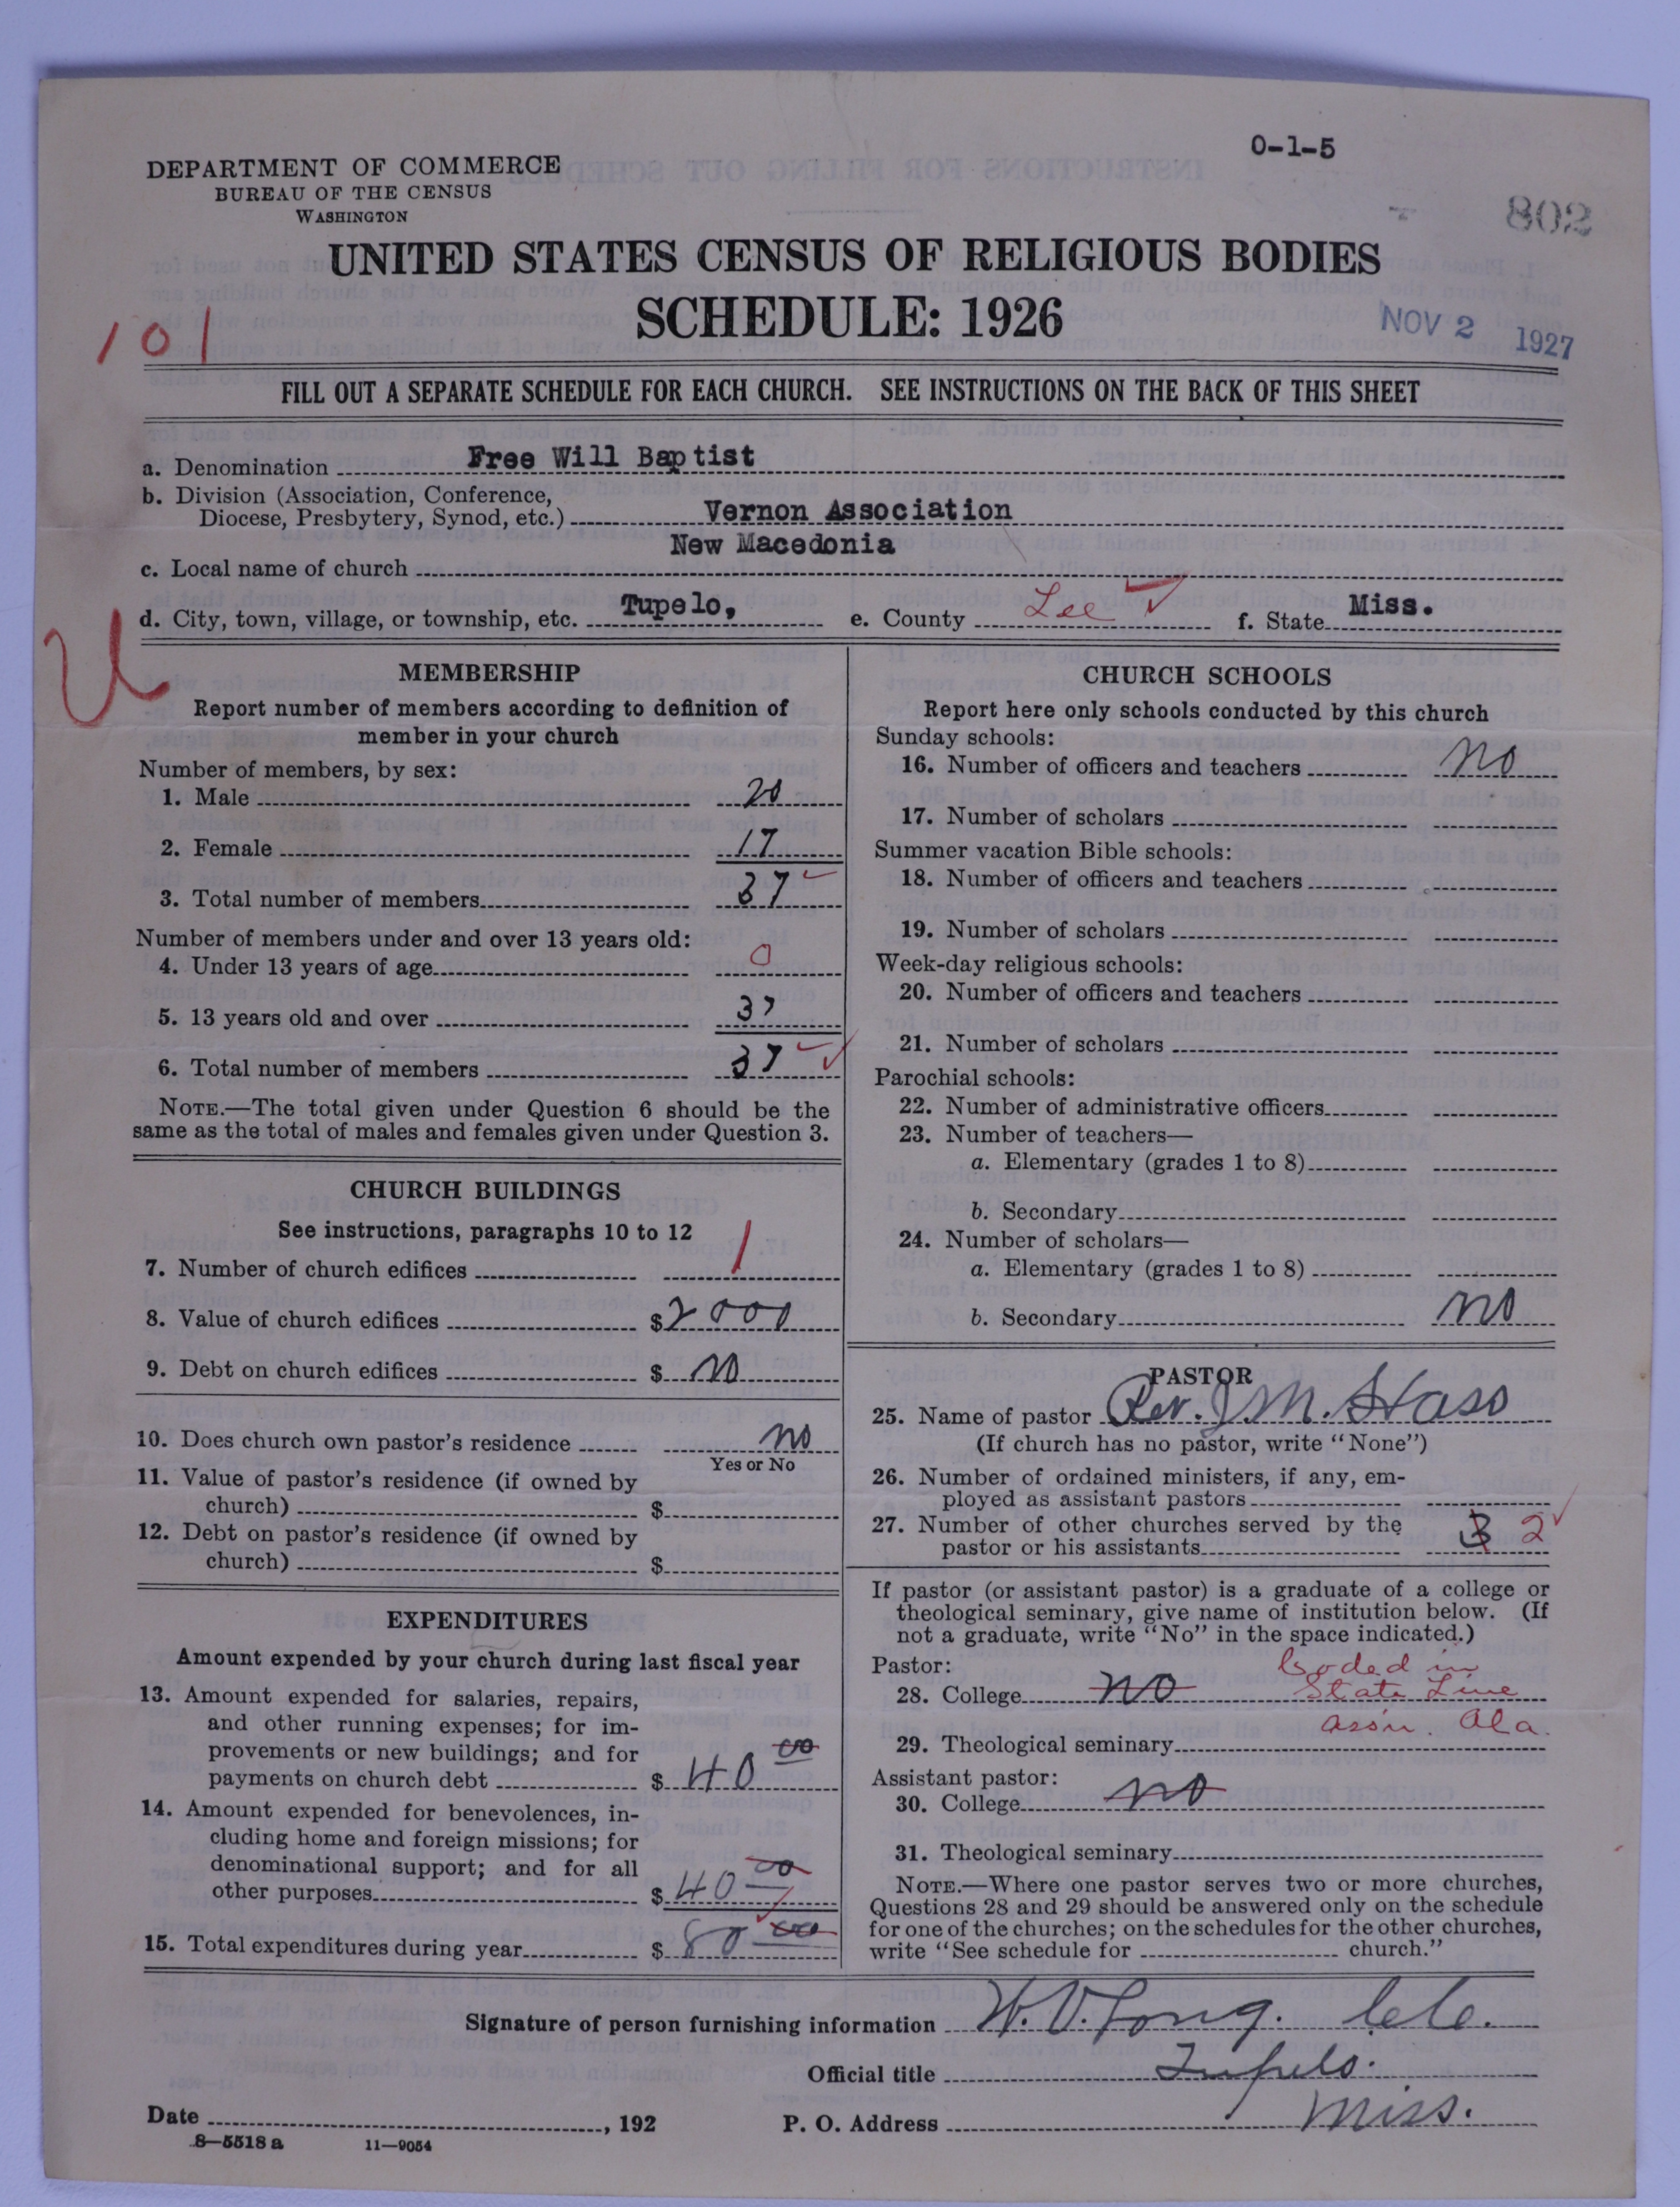 0-1-5
802
DEPARTMENT OF COMMERCE
BUREAU OF THE CENSUS
WASHINGTON
UNITED STATES CENSUS OF RELIGIOUS BODIES
SCHEDULE: 1926
NOV 2 1927
101
FILL OUT A SEPARATE SCHEDULE FOR EACH CHURCH. SEE INSTRUCTIONS ON THE BACK OF THIS SHEET
a. Denomination Free Will Baptist
b. Division (Association, Conference,
Diocese, Presbytery, Synod, etc.) Vernon Association
New Macedonia
c. Local name of church
d. City, town, village, or township, etc. Tupelo, e. County Lee f. State Miss.
U
MEMBERSHIP
Report number of members according to definition of
member in your church
Number of members, by sex:
1. Male 20
2. Female 17
3. Total number of members 37
Number of members under and over 13 years old:
4. Under 13 years of age 0
5. 13 years old and over 37
6. Total number of members 37
NOTE.—The total given under Question 6 should be the
same as the total of males and females given under Question 3.
CHURCH BUILDINGS
See instructions, paragraphs 10 to 12
7. Number of church edifices 1
8. Value of church edifices $2000
9. Debt on church edifices $ no
10. Does church own pastor's residence no
Yes or No
11. Value of pastor's residence (if owned by
church) $
12. Debt on pastor's residence (if owned by
church) $
EXPENDITURES
Amount expended by your church during last fiscal year
13. Amount expended for salaries, repairs,
and other running expenses; for im-
provements or new buildings; and for
payments on church debt $ 40 00
14. Amount expended for benevolences, in-
cluding home and foreign missions; for
denominational support; and for all
other purposes $ 40 00
15. Total expenditures during year $ 80 00
CHURCH SCHOOLS
Report here only schools conducted by this church
Sunday schools:
16. Number of officers and teachers no
17. Number of scholars
Summer vacation Bible schools:
18. Number of officers and teachers
19. Number of scholars
Week-day religious schools:
20. Number of officers and teachers
21. Number of scholars
Parochial schools:
22. Number of administrative officers
23. Number of teachers—
a. Elementary (grades 1 to 8)
b. Secondary
24. Number of scholars—
a. Elementary (grades 1 to 8)
b. Secondary no
PASTOR
25. Name of pastor Rev. J M.
(If church has no pastor, write "None")
26. Number of ordained ministers, if any, em-
ployed as assistant pastors
27. Number of other churches served by the
pastor or his assistants 3 2
If pastor (or assistant pastor) is a graduate of a college or
theological seminary, give name of institution below. (If
not a graduate, write "No" in the space indicated.)
Pastor: Coded in
28. College no State Line
Ass'n. Ala.
29. Theological seminary
Assistant pastor:
30. College no
31. Theological seminary
NOTE.—Where one pastor serves two or more churches,
Questions 28 and 29 should be answered only on the schedule
for one of the churches; on the schedules for the other churches,
write "See schedule for church."
Signature of person furnishing information W. V. Long.
Official title Tupelo.
Date , 192 P. O. Address Miss.
8—5518 a 11—9054